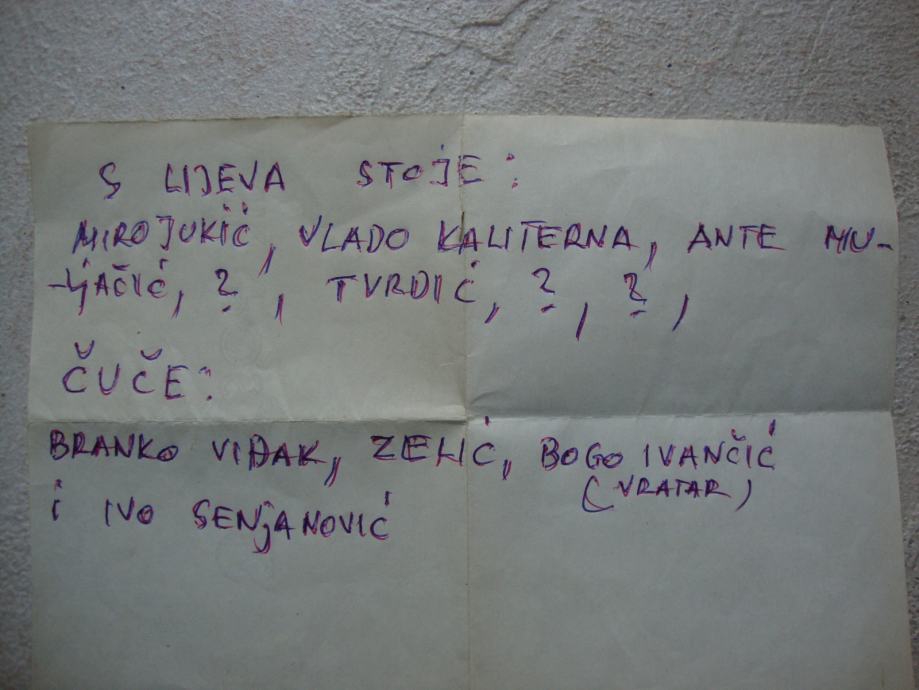 S LIJEVA STOJE:
MIRO JUKIĆ, VLADO KALITERNA, ANTE MIU-
-LJAČIĆ, ?, TVRDIĆ, ?, ?,
ČUČE:
BRANKO VIĐAK, ZELIĆ, BOGO IVANČIĆ
(VRATAR)
i IVO SENjANOVIĆ